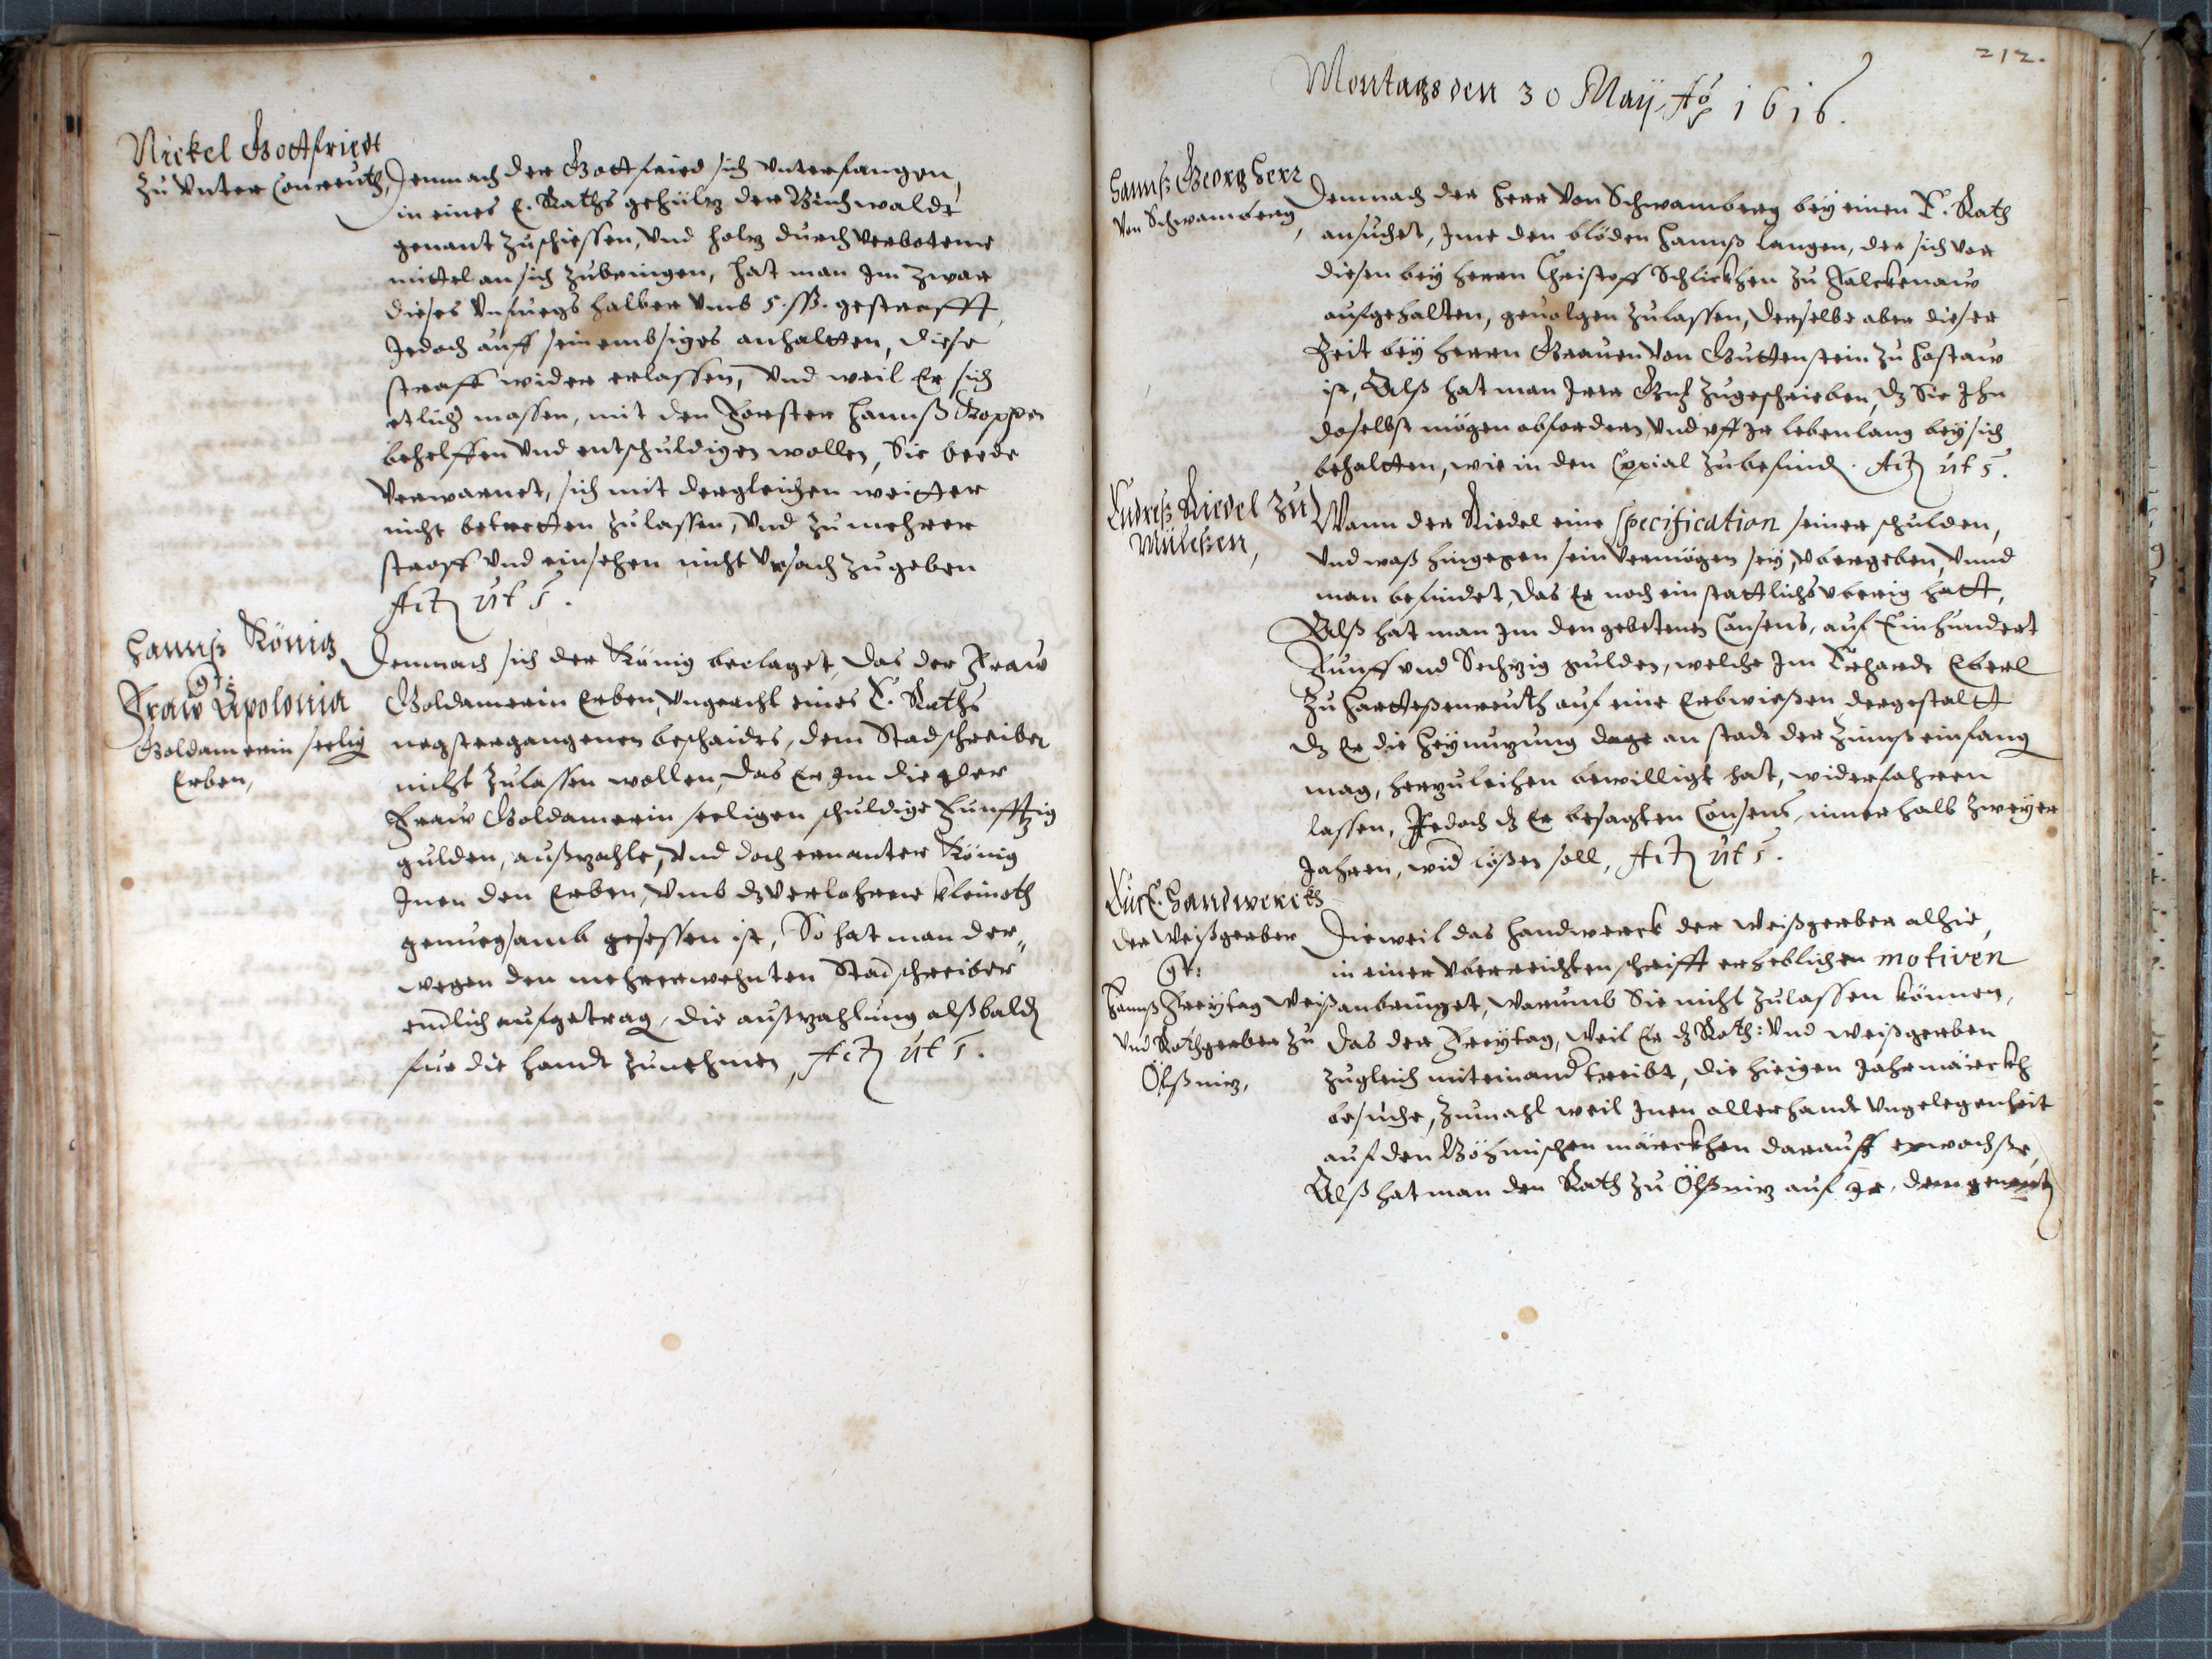 Nickel Gottfriedt
zu Unter Conreuth,
Demnach der Gottfried sich unterfangen,
in eines E. Raths gehültz der Buchwaldt
genant zuschiessen, und holtz durch verbotene
mittel an sich zubringen, hat man Im zwar
dieses Unfuegs halber umb 5. ß. gestrafft,
Jedoch auff sein embsiges anhaltten, diese
straff wider erlassen, und weil Er sich
etlich massen, mit den Forster Hannß Koppen
behelffen und entschuldigen wollen, Sie beede
verwarnet, sich mit dergleichen weitter
nicht betretten zulassen, und zu mehrer
straff und einsehen nicht Ursach zugeben
Act ut s.
Hannß König
gt:
Fraw Apolonia
Goldamerin seelig
Erben,
Demnach sich der König beclaget, das der Fraw
Goldamerin Erben, Ungeacht eines E. Raths
negstergangenen beschaides, dem Stadschreiber
nicht zulassen wollen, das Er Im die der
Fraw Goldamerin seeligen schuldige Funfftzig
gulden, außzahle, und doch ernanter König
Inen den Erben, umb dz verlohrne kleinoth
genuegsamb gesessen ist, So hat man der„
wegen den mehrerwehnten Stadschreiber
endlich aufgetrag, die außzahlung alßbald
fur die handt zunehmen, Act ut s.
212.
Montags den 30 May Ao 1616.
Hannß Georg Herr
von Schwamberg,
Demnach der Herr von Schwamberg bey einen E. Rath
ansuchet, Ime den blöden Hannß Langen, der sich vor
diesen bey Herrn Christoff Schlickhen zu Falckenaw
aufgehalten, gevolgen zulassen, derselbe aber dieser
Zeit bey Herrn Graven von Guttenstein zu Hostaw
ist, Alß hat man Irer Gn. zugeschrieben, dz Sie Ihn
daselbst mögen abfordern, und uff Ir lebenlang bey sich
behaltten, wie in den Copial zubefind. Act ut s.
Endreß Riedel zu
Mülessen,
Wann der Riedel eine specification seiner schulden,
und waß hingegen sein vermögen sey, ubergeben, Unnd
man befindet, das Er noch ein stattlichs uberig hatt,
Alß hat man Im den gebetenen Consens, auf Einhundert
Funff und Sechtzig gulden, welche Im Erhardt Eberl
zu Harttessenreuth auf eine Erbwiessen dergestaltt
dz Er die Heynutzung an stadt der Zinnß einfang
mag, herzuleihen bewilligt hat, widerfahren
lassen, Jedoch dz Er besagten Consens, innerhalb Zweyer
Jahren, wid lößen soll, Act ut s.
Ein E. Handwerckh
der Weißgerber
gt:
Hannß Freytag Weiß
und Rothgerber zu
Ölßnitz,
Dieweil das Handwerck der Weißgerber alhie,
in einer uberreichten schrifft erheblichen motiven
anbringet, warumb Sie nicht zulassen können,
Das der Freytag, weil Er dz Roth: und Weißgerben
zugleich miteinand treibt, die hieigen Jahrmärckh
besuche, zumahl weil Inen allerhandt ungelegenheit
auf den Böhmischen märckhen darauß erwachse,
Alß hat man den Rath zu Ölßnitz auf Ir, dem